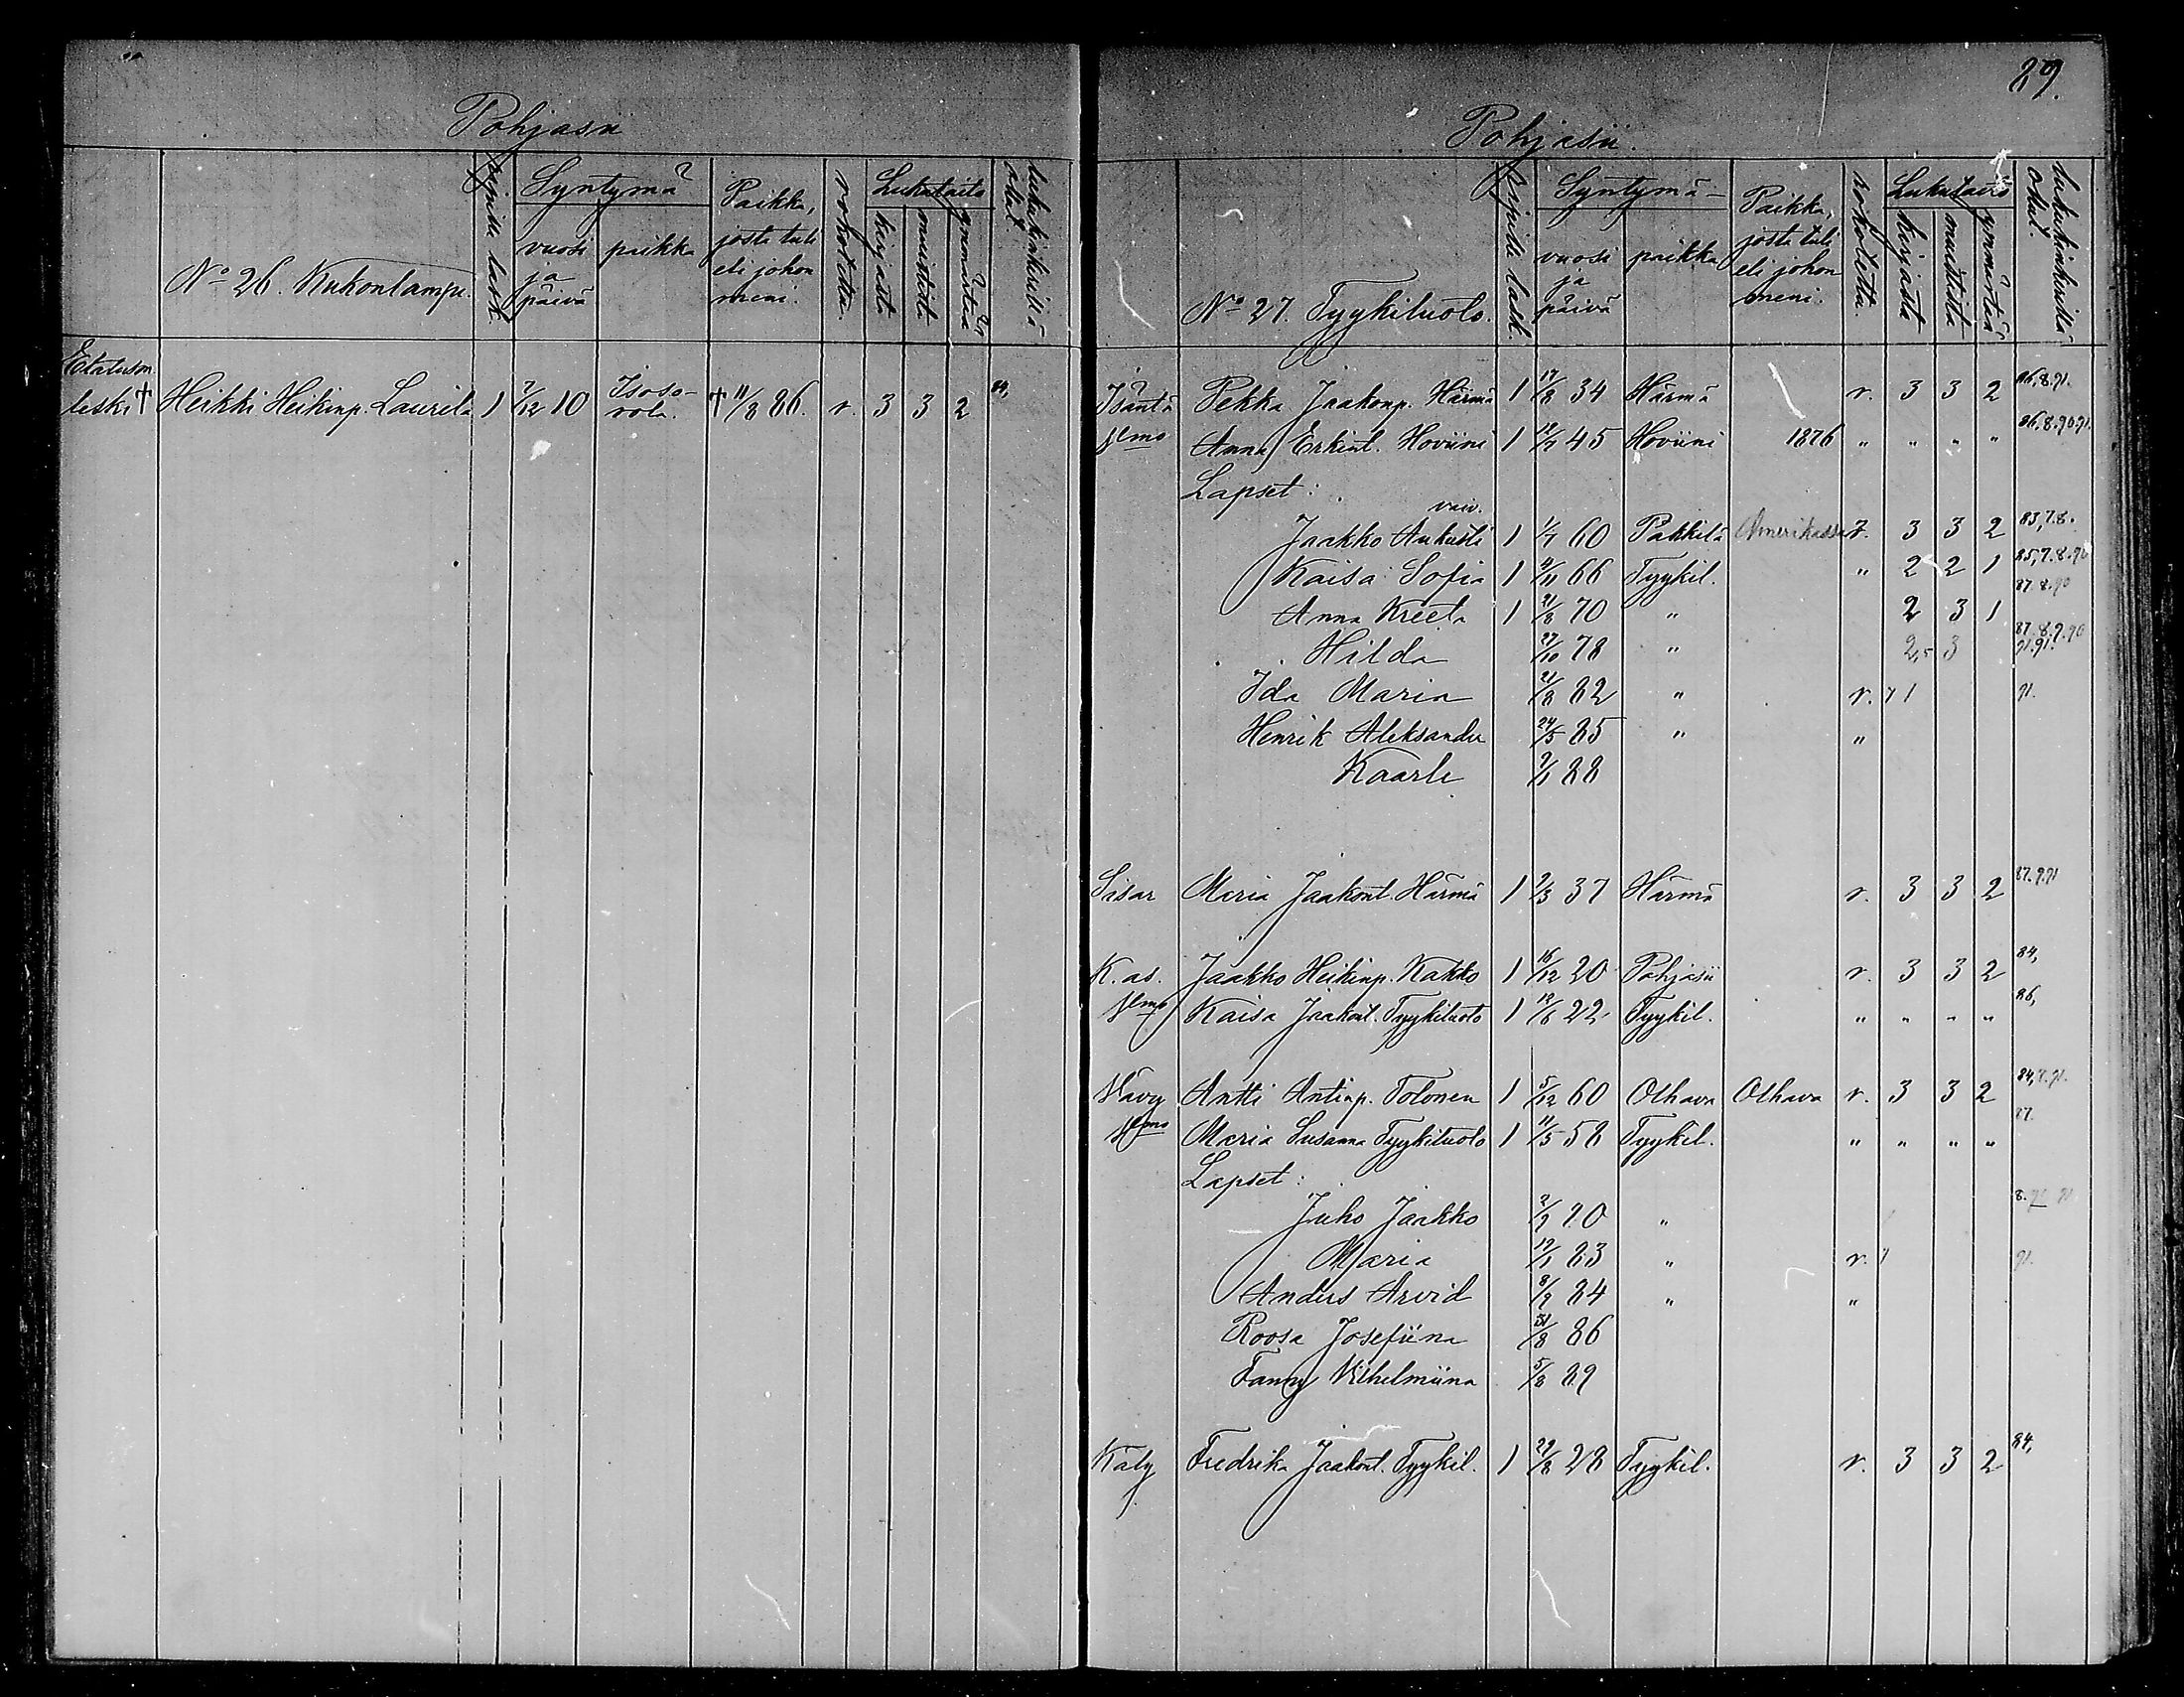 Pohjasii
No 26. Kukonlampi.
Ripille lask.
Syntymä
vuosi ja päivä
paikka
Paikka, josta tuli eli johon meni.
rokotettu.
Lukutaito
kirjasta
muistista
ymmärtää
lukukinkerillä ollut.
leski † Heikki Heikinp. Laurila 1 7/12 10 Isoso- † 11/8 86. r. 3 3 2 84,
89.
Pohjasii.
No 27. Tyykiluoto.
Ripille lask.
Syntymä-
vuosi ja päivä
paikka
Paikka, josta tuli eli johon meni.
rokotettu.
Lukutaito
kirjasta
muistista
ymmärtää
lukukinkerillä ollut.
Isäntä Pekka Jaakonp. Härmä 1 17/8 34 Härmä r. 3 3 2 86,8.91.
Vmo Anna Erkint. Hoviini 1 12/7 45 Hoviini 1876 " " " " 86,8.90.91.
Lapset:
vaiv.
Jaakko Aukusti 1 1/7 60 Pakkila Amerikassa r. 3 3 2 83,7.8.
Kaisa Sofia 1 4/11 66 Tyykil. " 2 2 1 85,7.8.90
Anna Kreeta 1 21/8 70 " 2 3 1 87.8.90
Hilda 27/10 78 " 2,5 3 87.8.9.90 91.91.
Ida Maria 21/8 82 " r. 71 91.
Henrik Aleksander 24/5 85 " "
Kaarle 9/1 88
Sisar Maria Jaakont. Härmä 1 2/3 37 Härmä r. 3 3 2 87.9.91
K.as. Jaakko Heikinp. Kakko 1 16/12 20 Pohjasii r. 3 3 2 84,
Vmo Kaisa Jaakont. Tyykiluoto 1 12/6 22 Tyykil. " " " " 86,
Vävy Antti Antinp. Tolonen 1 5/12 60 Olhava Olhava r. 3 3 2 84,8.91.
Vmo Maria Susanna Tyykiluoto 1 11/5 58 Tyykil. " " " " 87.
Lapset:
Juho Jaakko 2/9 80 "
Maria 19/1 83 " r. 91.
Anders Arvid 8/9 84 " "
Roosa Josefiina 31/8 86
Fanny Vilhelmiina 5/8 89
Käly Fredrika Jaakont. Tyykil. 1 29/8 28 Tyykil. r. 3 3 2 84,